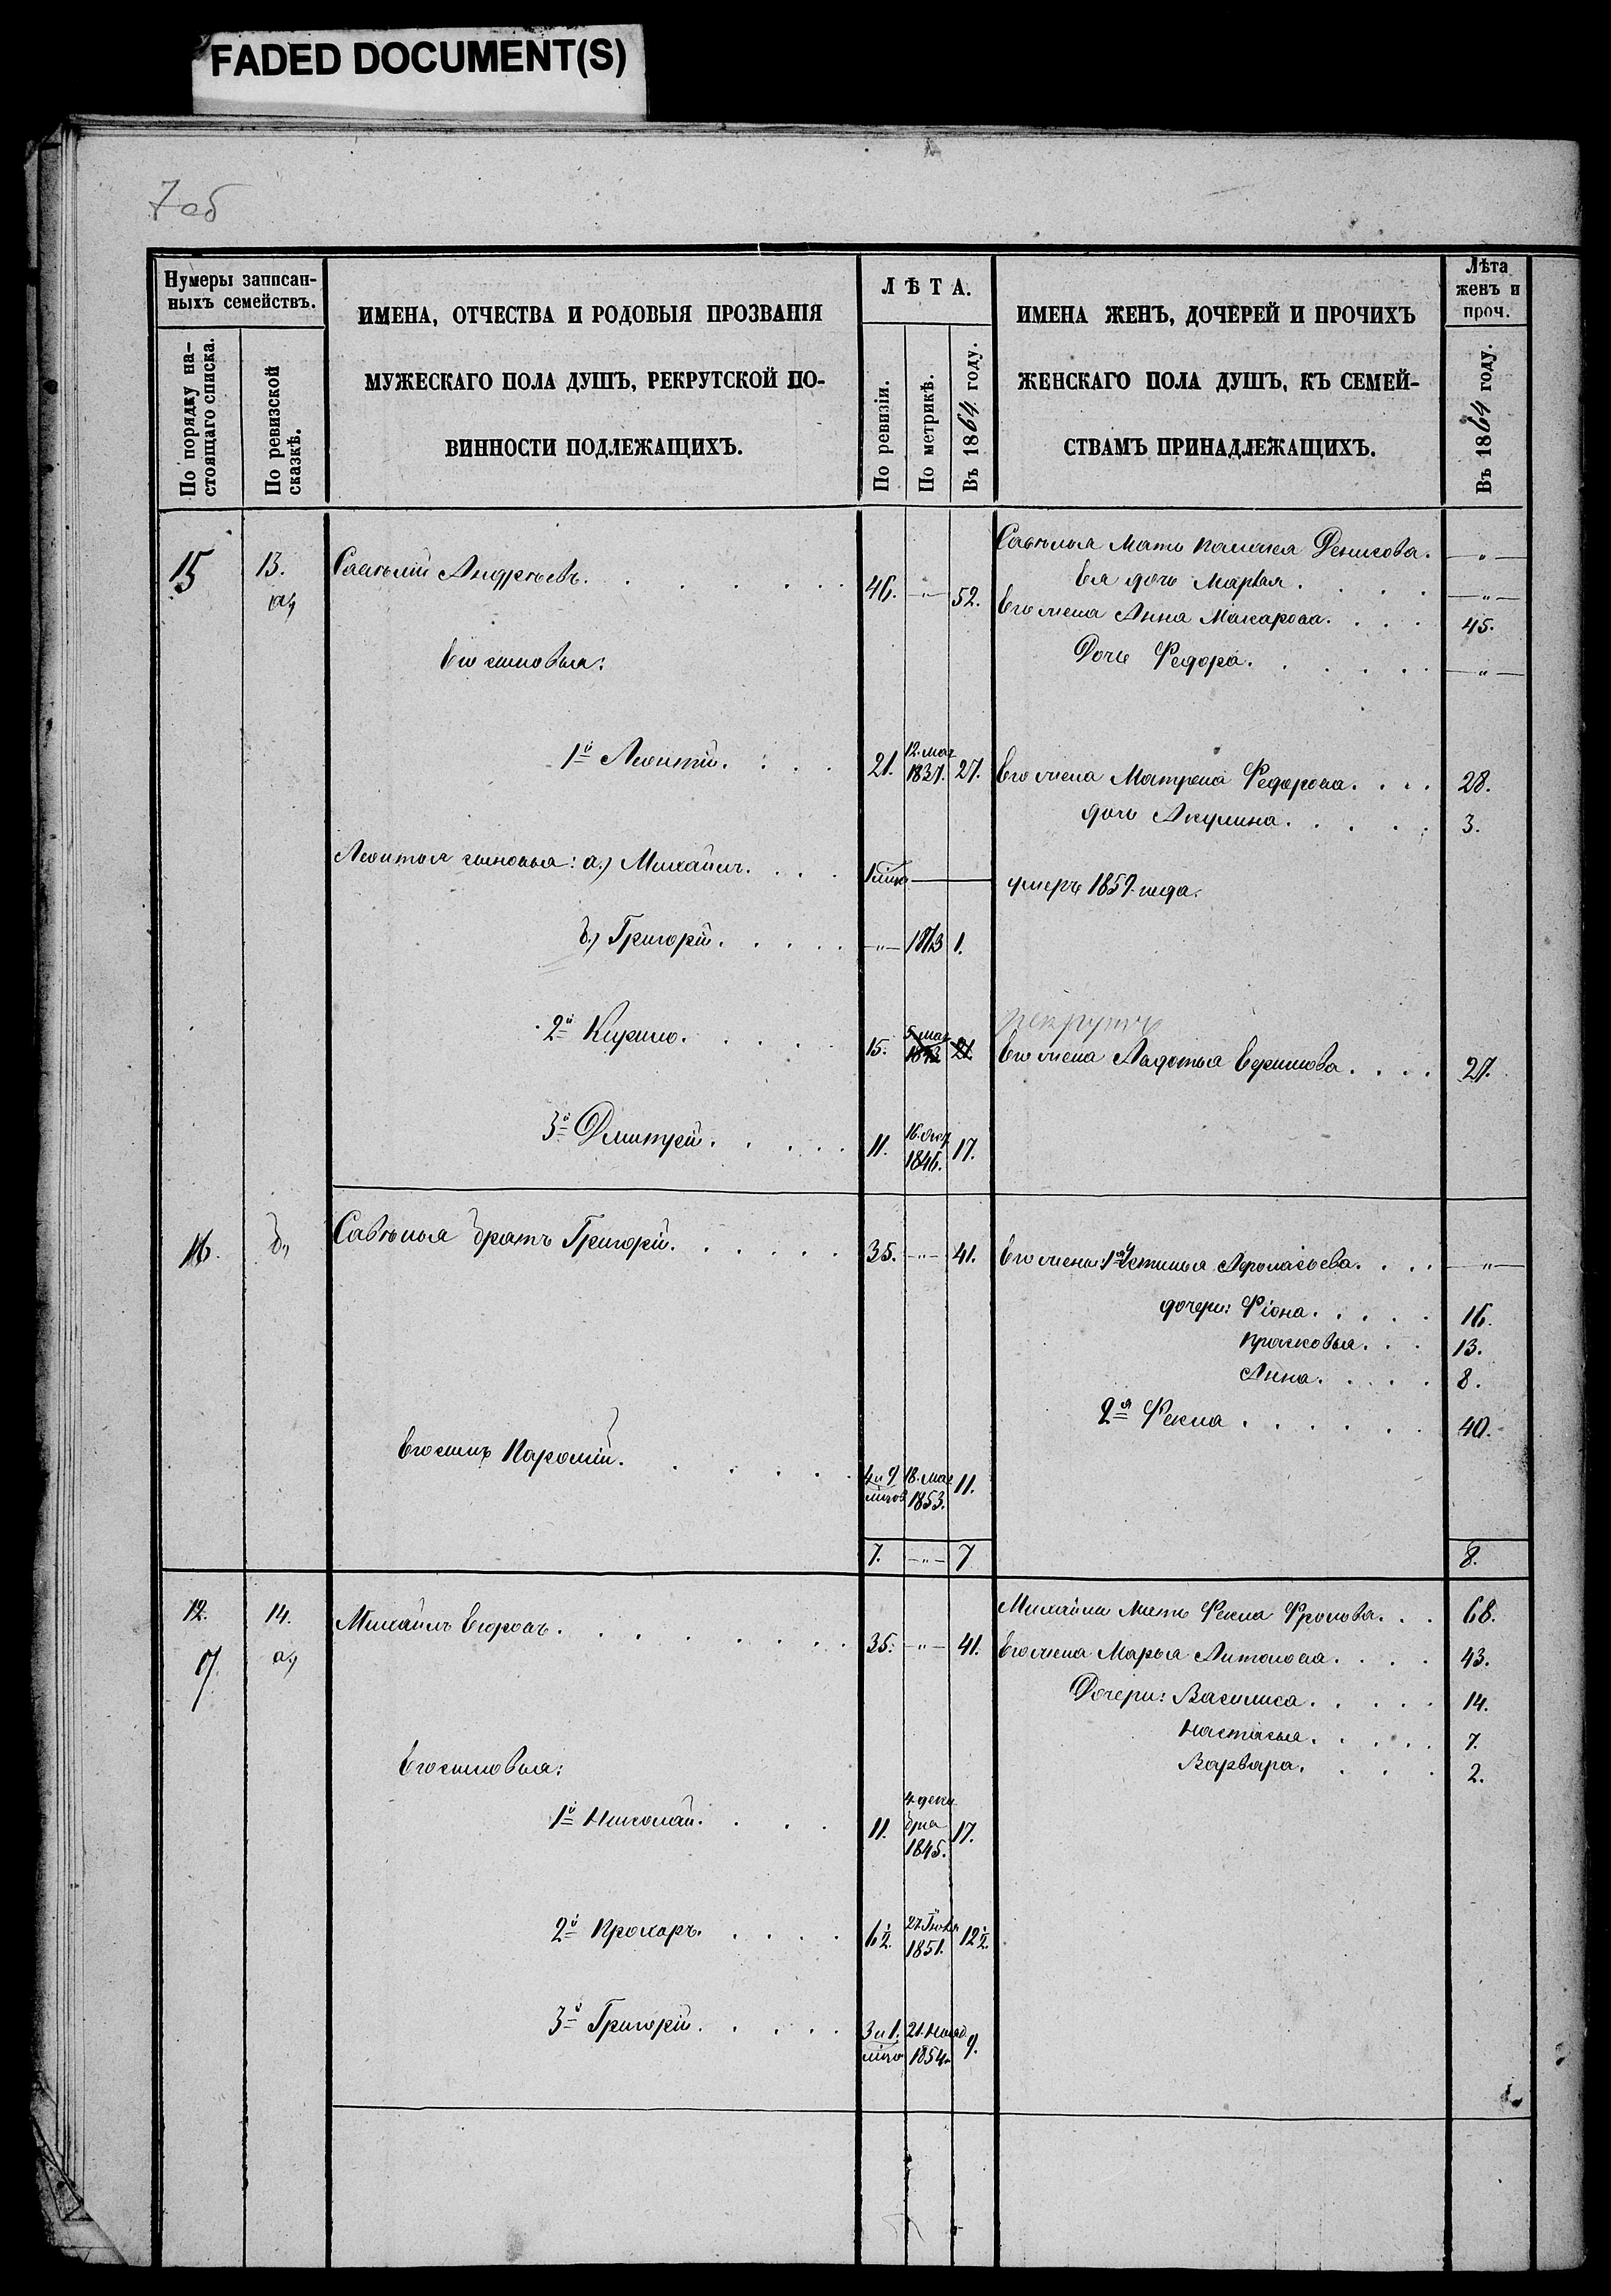 FADED DOCUMENT(S)
7 об
Нумеры записан-
ныхъ семействъ.
По порядку на-
стоящаго списка.
По ревизской
сказкѣ.
ИМЕНА, ОТЧЕСТВА И РОДОВЫЯ ПРОЗВАНІЯ
МУЖЕСКАГО ПОЛА ДУШЪ, РЕКРУТСКОЙ ПО-
ВИННОСТИ ПОДЛЕЖАЩИХЪ.
ЛѢТА.
По ревизіи.
По метрикѣ.
Въ 1864 году.
ИМЕНА ЖЕНЪ, ДОЧЕРЕЙ И ПРОЧИХЪ
ЖЕНСКАГО ПОЛА ДУШЪ, КЪ СЕМЕЙ-
СТВАМЪ ПРИНАДЛЕЖАЩИХЪ.
Лѣта
женъ и
проч.
Въ 1864 году.
Савѣлья мать Денисова. — " —
15 13. а, Савѣлій Андрѣевъ. 46. — " — 52.
Ея дочь Марья. — " —
Его жена Анна Макарова. 45.
Его сыновья:
Дочь Федора. — " —
1й Леонтій. 21. 12. мая 1837. 27. Его жена Матрена Федорова. 28.
дочь Акулина. 3.
Леонтья сыновья: а,) Михайлъ. 1 мѣс. умеръ 1859 года.
б,) Григорій. — " — 1863 1.
рекрутъ
2й Кирило. 15. 5 мая 1843 21. Его жена Авдотья Ефимова. 27.
3й Дмитрій. 11. 16. 1846. 17.
16. б, Савѣлья братъ Григорій. 35. — " — 41. Его жены: 1я Устинья Афонасьева. — " —
дочери: Фіона. 16.
Прасковья. 13.
Анна. 8.
2я Фекла 40.
Его сынъ Парфеній. 4 и 9 мѣсяц 18. мая 1853. 11.
7. — " — 7 8.
12. 14. Михайлы мать Фекла Фролова. 68.
Михайлъ Егоровъ. 35. — " — 41.
17 а, Его жена Марья Антонова. 43.
Дочери: Василиса. 14.
Настасья. 7.
Его сыновья:
Варвара. 2.
1й Николай. 11. 4 дека бря 1845. 17.
2й Прохаръ. 6½. 27. Іюля 1851. 12½.
3й Григорій. 3 и 1. мѣсяц 21. Нояб 1854. 9.